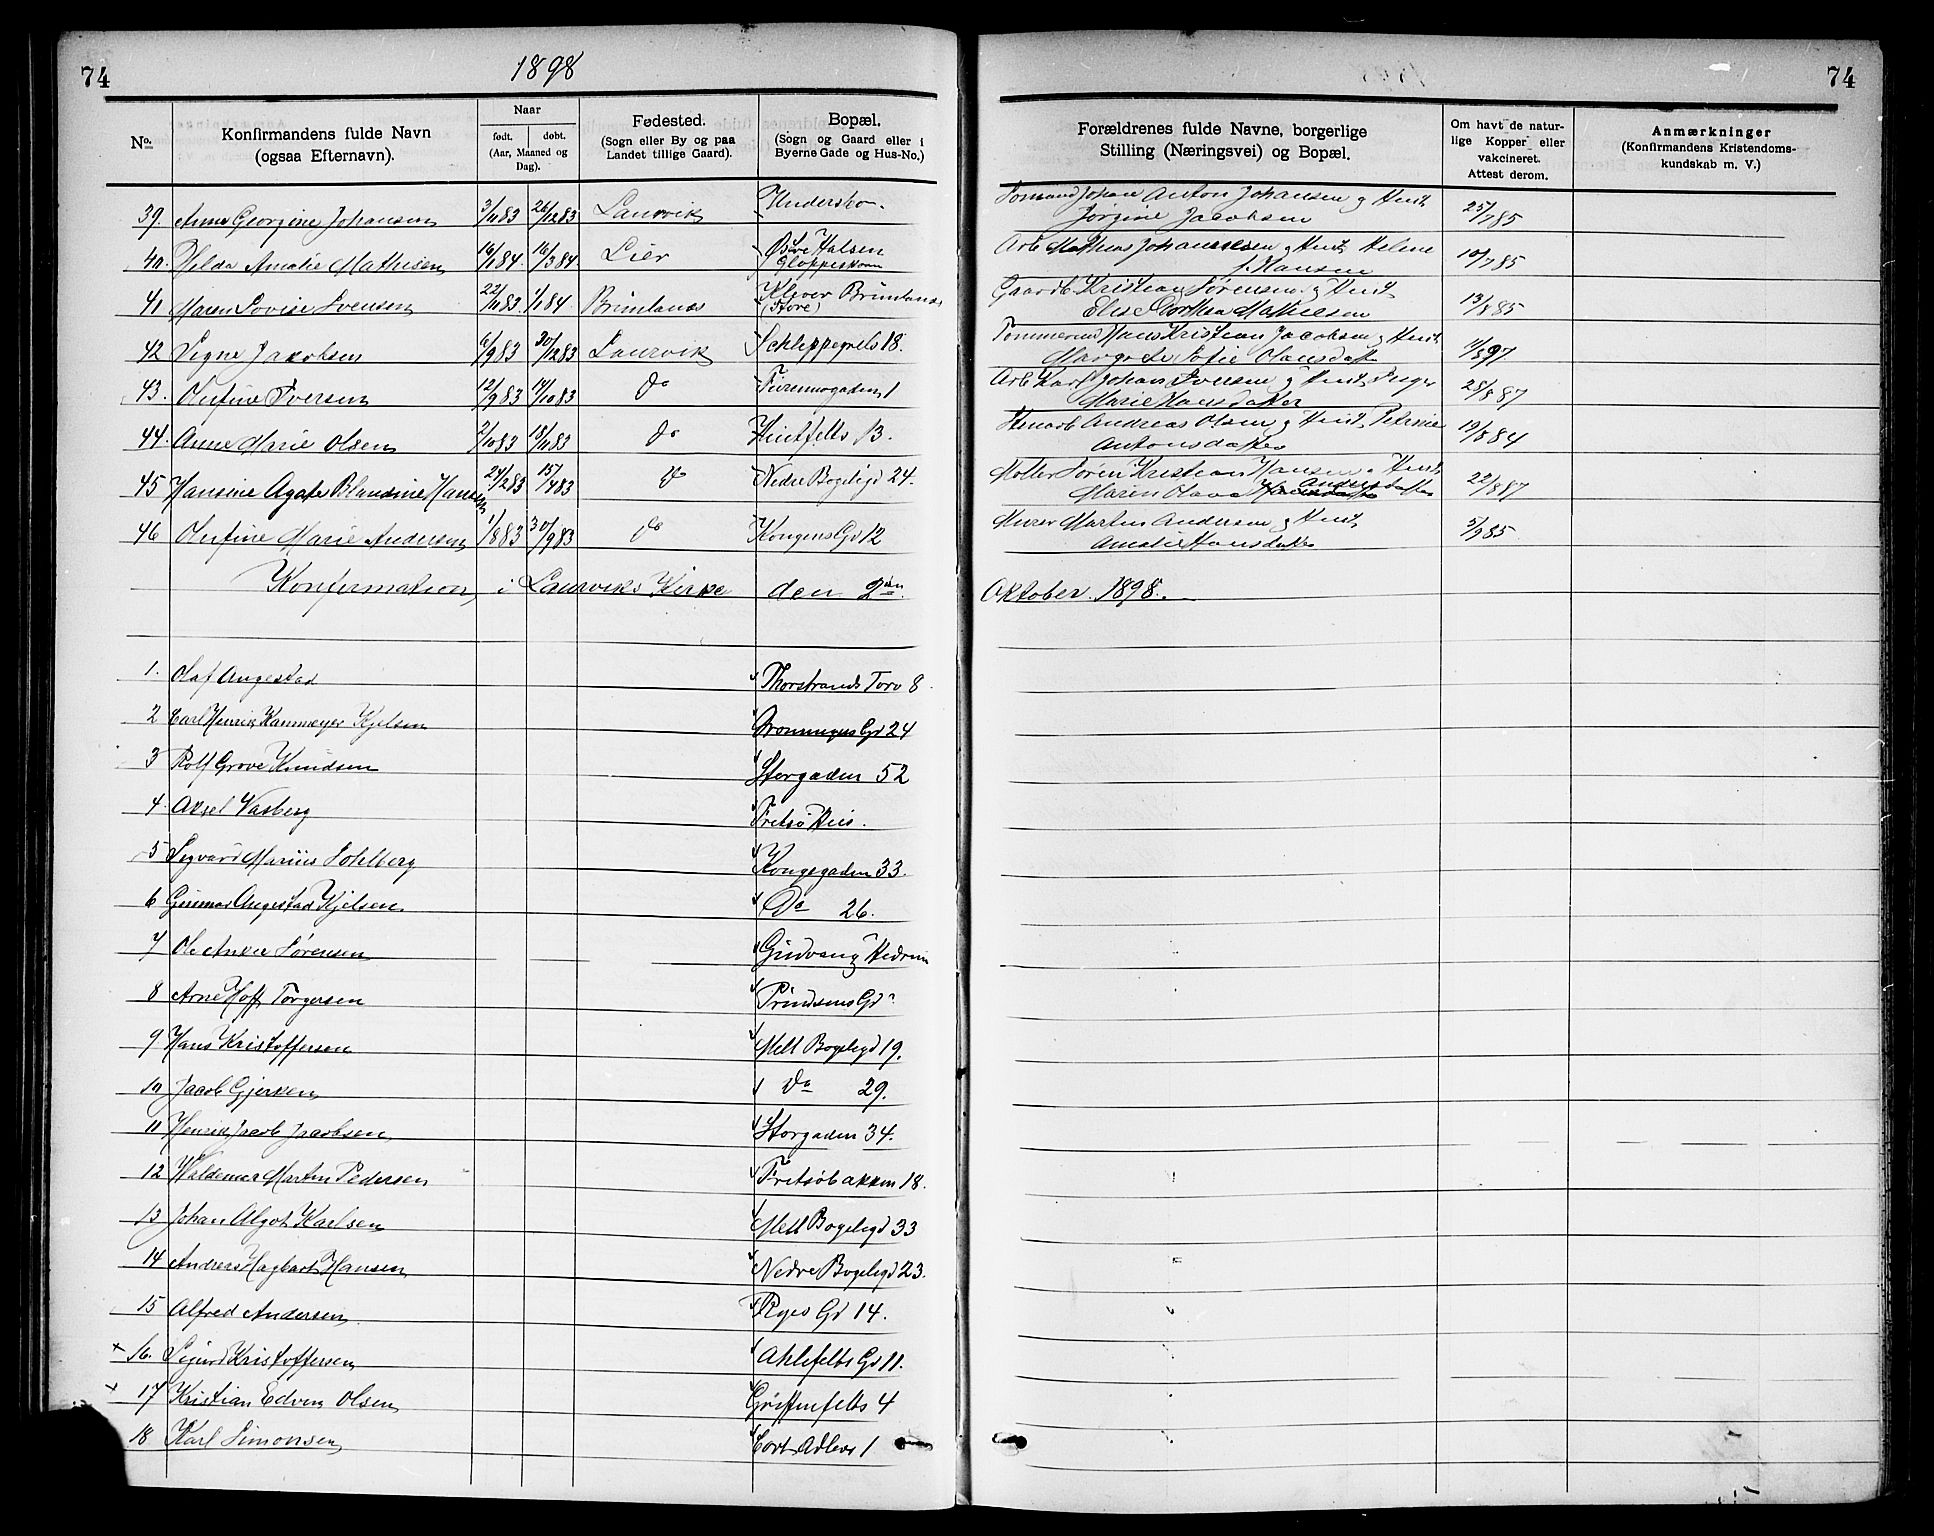 74
1898
No.
Konfirmandens fulde Navn
(ogsaa Efternavn).
Naar
født.
døbt.
(Aar, Maaned og
Dag).
Fødested.
(Sogn eller By og paa
Landet tillige Gaard).
Bopæl.
(Sogn og Gaard eller i
Byerne Gade og Hus-No.)
39. Anna Georgine Johansen 3/11 83 26/12 83 Laurvik
40. Hilda Amalie Mathisen 16/1 84. 16/3 84 Lier Østre Halsen
41 Maren Lovise Svensen 22/11 83. 1/1 84. Brunlanæs Klever Brunlanæs
(Store)
42 Signe Jakobsen 6/9 83 30/12 83 Laurvik Schleppegrels 18.
43. Olufine Iversen 12/9 83 14/10 83 Do
44. Anne Marie Olsen 2/10 83 18/11 83 Do B.
45 Hansine Agate Blandine Hansen 24/2 83 15/4 83 Do Nedre Bøgeligd 24.
46 Olufine Marie Andersen 1/8 83 30/9 83 Do Kongens Gd 12
Konfirmation i Laurviks Kirke den 2den
1. Olaf Angestad Thorstrands Torv 8.
2 Carl Henrik Kammeyer Kjelsen Gd 24
3 Rolf Grove Knudsen Storgaden 52
4. Aksel Vasberg Fritsø Hus.
5 Sigvard Marius Sohlberg Kongegaden 33.
6 Gunnar Angestad Kjelsen Do 26.
7 Ole Anker Sørensen Hedrum
8 Arne Hoff Torgersen Prindsens Gd ?
9 Hans Kristoffersen Mell Bøgeligd 19.
10 Jacob Gjerken Do 29.
11 Henrik Jacob Jacobsen Storgaden 34.
12 Waldemar Martin Pedersen Fritsøbakken 18.
13 Johan Algot Karlsen Mell Bøgeligd 33
14 Andreas Hagbart Hansen Nedre Bøgeligd 23.
15 Alfred Andersen Ryes Gd 14.
+ 16. Sigurd Kristoffersen Ahlefelts Gd 11.
+ 17 Kristian Edvin Olsen Griffenfelts 4
18 Karl Simonsen Cort Adlers 1
74
Forældrenes fulde Navne, borgerlige
Stilling (Næringsvei) og Bopæl.
Om havt de natur-
lige Kopper eller
vakcineret.
Attest derom.
Anmærkninger
(Konfirmandens Kristendoms-
kundskab m. V.)
Sømand Johan Anton Johansen og Hust 25/7 85
Jørgine Jacobsen
Arb Mathias Johannesen og Hust Helene 10/7 85
f. Hansen
Gaardb Kristian Sørensen og Hust 13/8 85
Elise Dorthea Mathiesen
Tømmermd Hans Kristian Jacobsen og Hust
Margrete Sofie Olausdatter
Arb Karl Johan Iversen og Hust Inger 28/8 87
Marie Hansdatter
Andreas Olsen og Hust 19/8 84
Antonsdatter
Møller Søren Kristian Hansen og Hust 22/8 87
Maren Olava Andersdatter
Murer Martin Andersen og Hust 5/9 85
Amalie Hansdatter
Oktober. 1898.